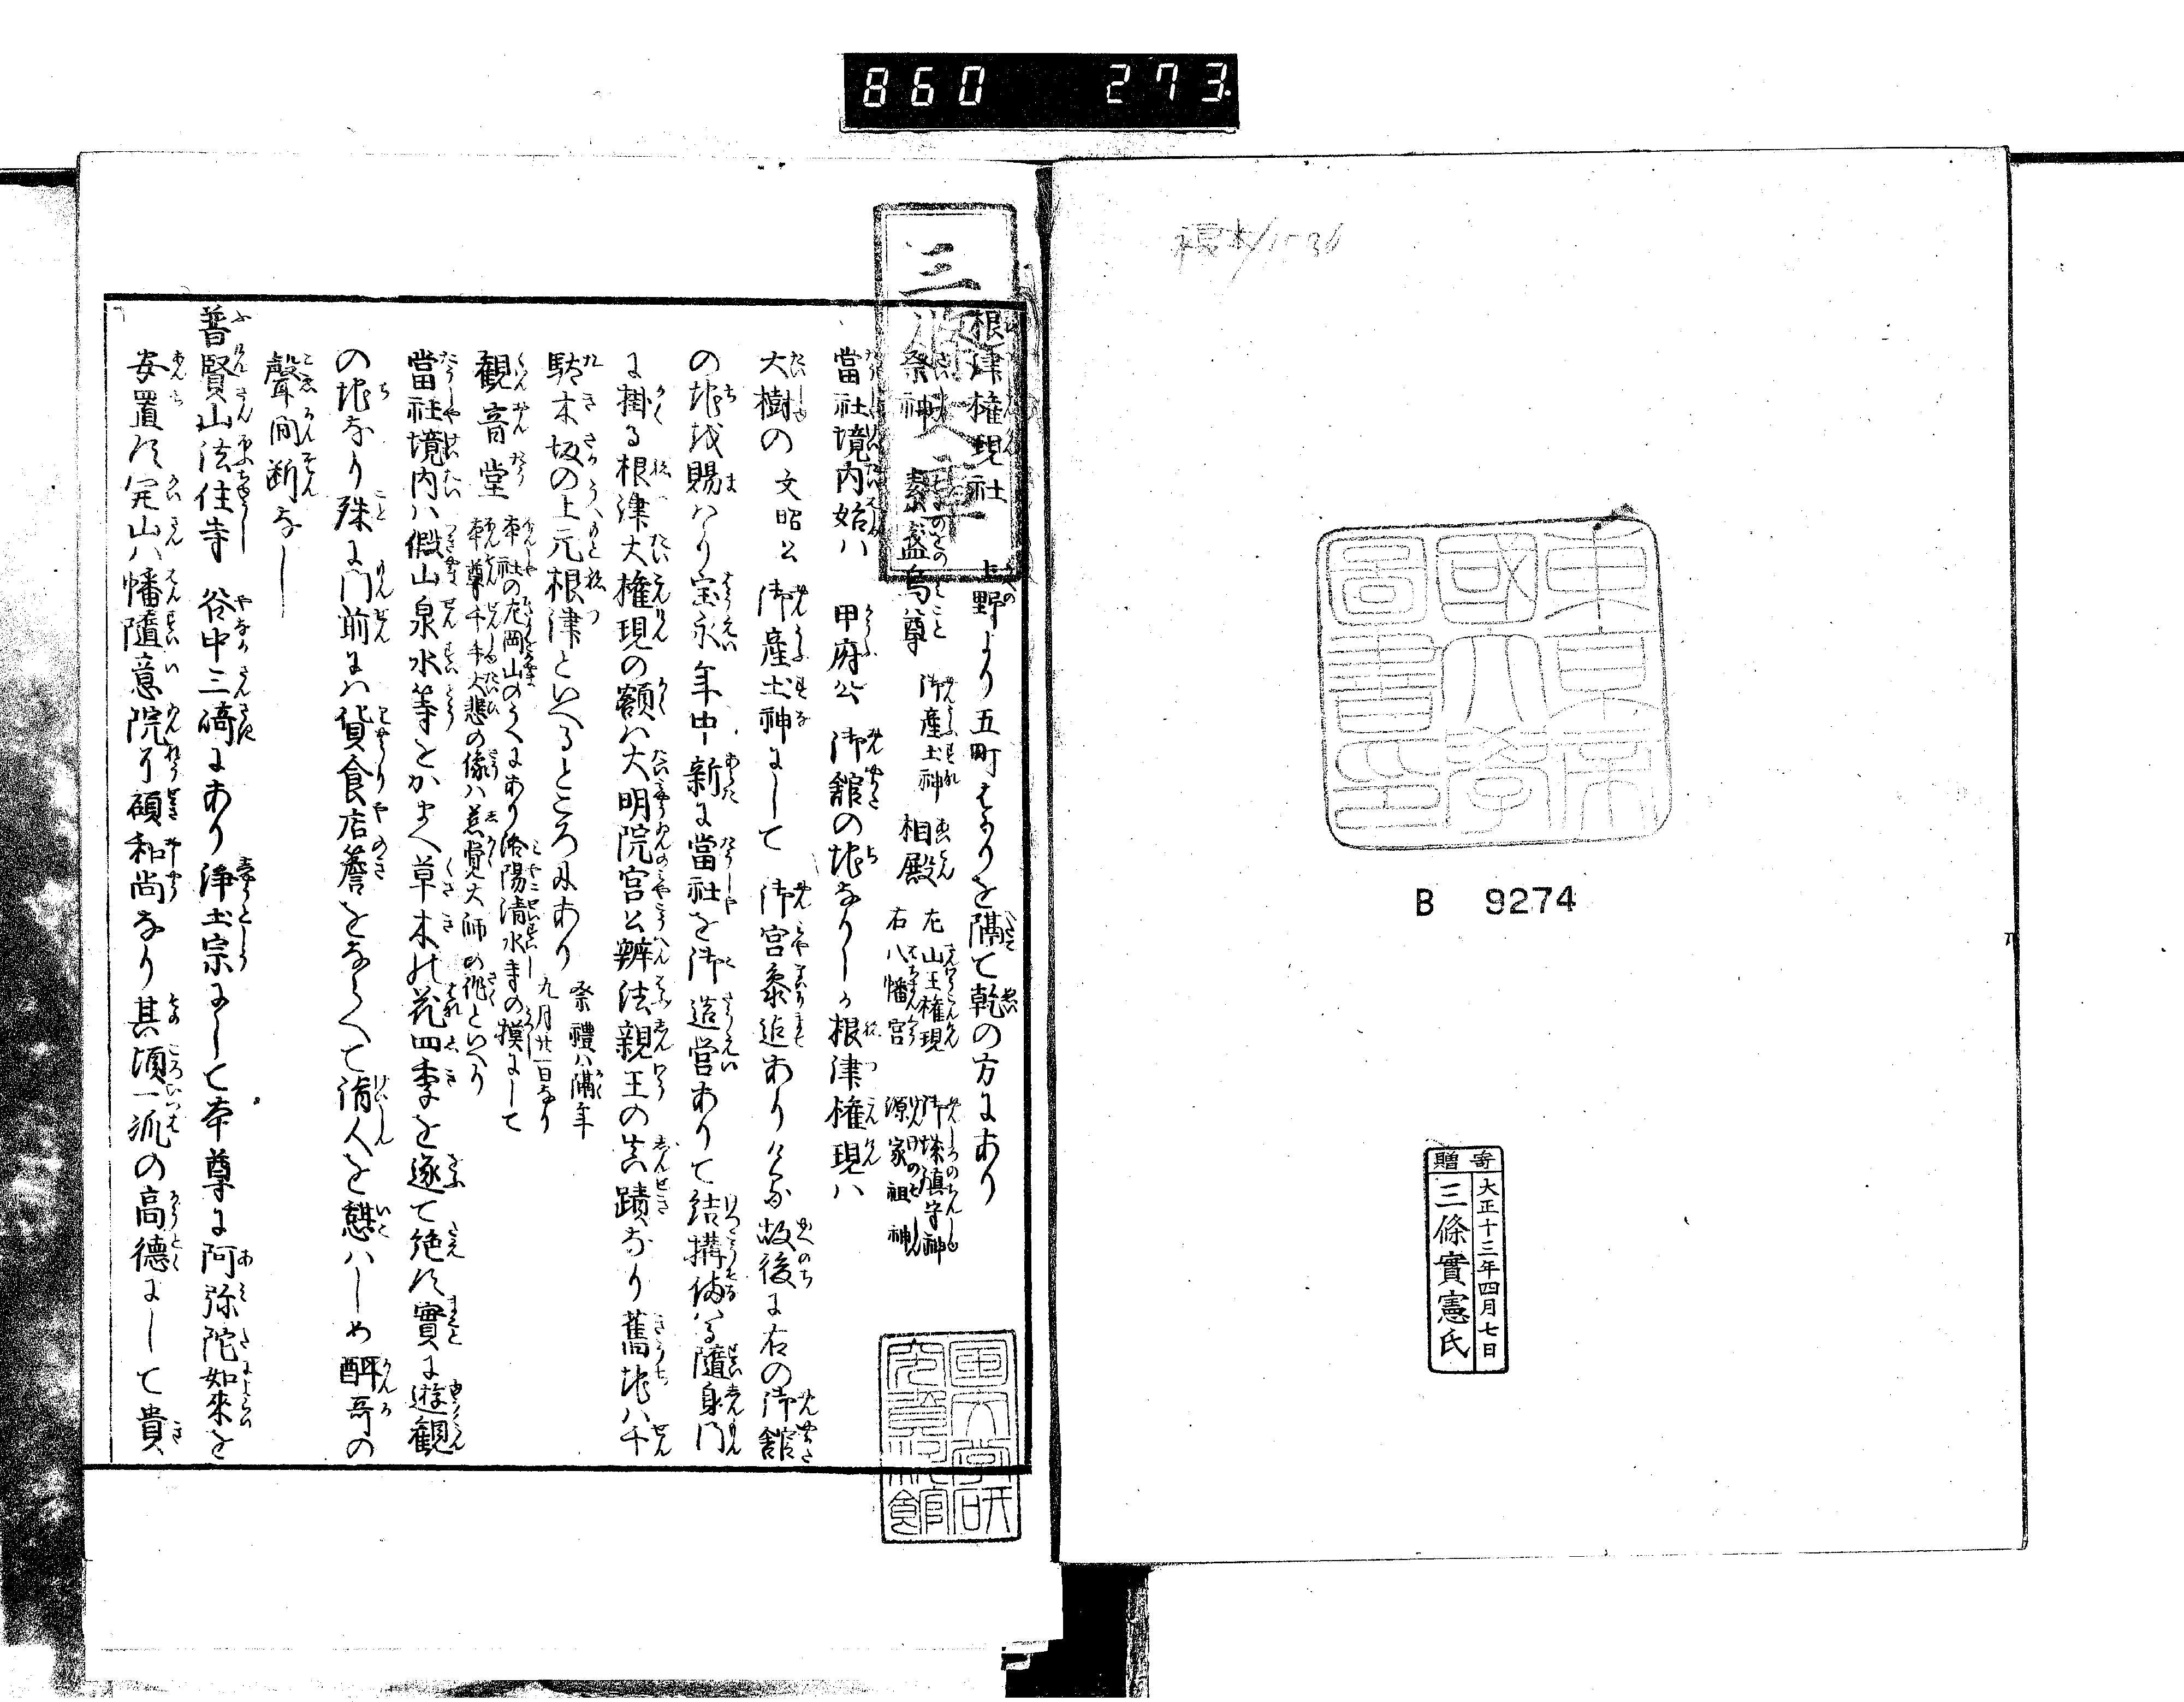 860 273
東京帝
國大學
圖書印
B 9274
寄贈
大正十三年四月七日
三條實憲氏
根津権現社
上野より五町はかりを隔て乾の方にあり
祭神 素盞烏尊 御産土神 相殿
左 山王権現 御城鎮守神
右 八幡宮 源家祖神
當社境内始ハ 甲府公 御舘の地なりしか根津権現ハ
大樹の 文昭公 御産土神にして 御宮参迄ありける故後に右の御舘
の地を賜ハり宝永年中新に當社を御造営ありて結搆備ハる随身門
に掛る根津大権現の額ハ大明院宮公辨法親王の真蹟なり舊地ハ千
駄木坂の上元根津といへるところにあり
祭禮ハ隔年
九月廿一日なり
観音堂
本社の左岡山のうへにあり洛陽清水寺の摸にして
本尊千手大悲の像ハ慈覚大師の作といへり
當社境内ハ假山泉水等をかまへ草木の花四季を逐て絶す實に遊観
の地なり殊に門前にハ貨食店簷をならへて詣人を憇ハしめ酣哥の
聲間断なし
普賢山法住寺 谷中三﨑にあり浄土宗にして本尊に阿弥陀如來を
安置す開山ハ幡隨意院了碩和尚なり其頃一派の高德にして貴